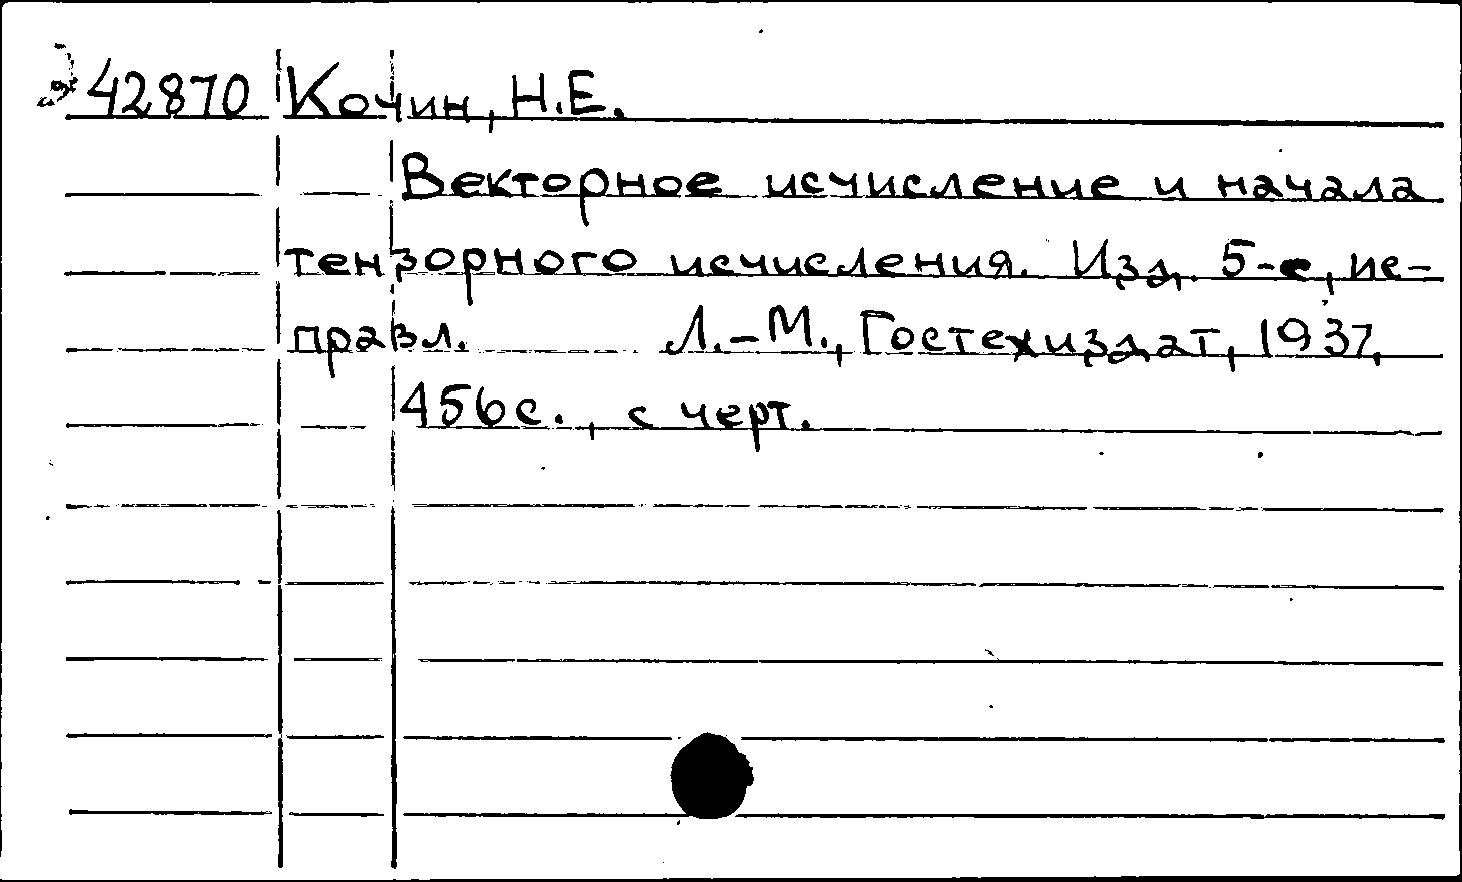 42870 Кочин, Н.Е.
Векторное исчисление и начала
тензорного исчисления. Изд. 5-е, ис-
правл. Л.-М., Гостехиздат, 1937,
456с., с черт.